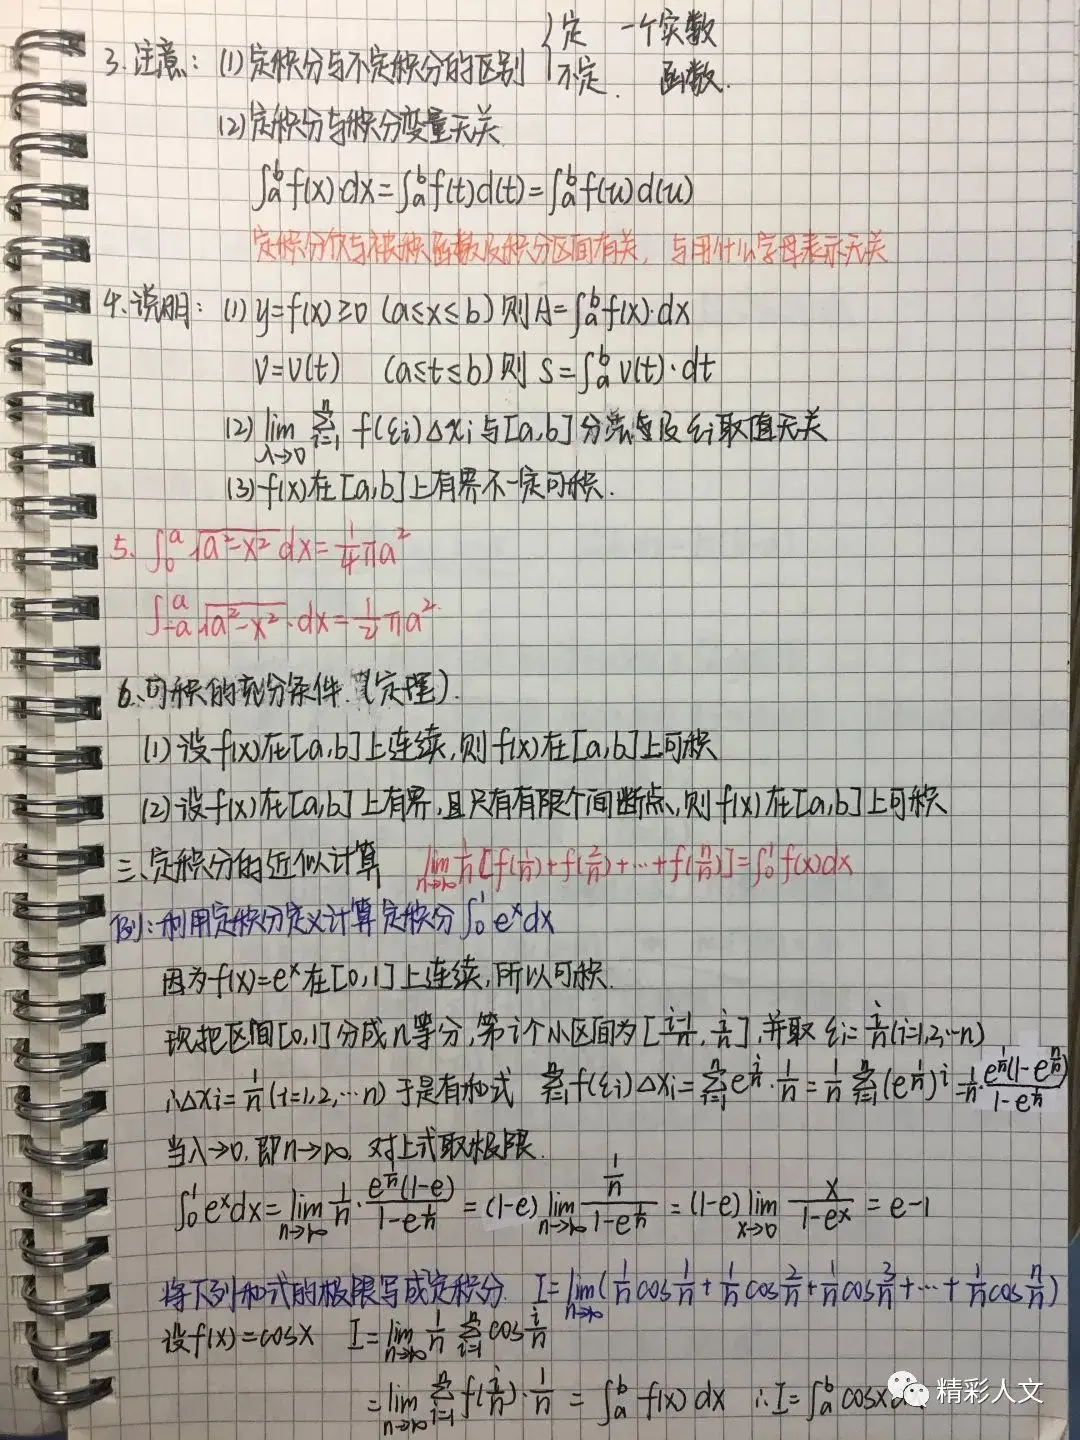 3. 注意: (1) 定积分与不定积分的区别 { 定 一个实数
不定. 函数.
(2) 定积分与积分变量无关
∫ₐᵇ f(x)·dx = ∫ₐᵇ f(t)d(t) = ∫ₐᵇ f(u)d(u)
定积分仅与被积函数及积分区间有关, 与用什么字母表示无关
4. 说明: (1) y=f(x)≥0 (a≤x≤b) 则 A=∫ₐᵇ f(x)·dx
V=V(t) (a≤t≤b) 则 S=∫ₐᵇ v(t)·dt
(2) lim λ→0 Σ i=1 n f(ξi)Δxi 与[a,b]分法及ξi取值无关
(3) f(x)在[a,b]上有界不一定可积.
5. ∫₀ᵃ √(a²-x²) dx = 1/4 πa²
∫₋ₐᵃ √(a²-x²)·dx = 1/2 πa²
6、可积的充分条件. (定理).
(1) 设f(x)在[a,b]上连续, 则f(x)在[a,b]上可积
(2) 设f(x)在[a,b]上有界, 且只有有限个间断点, 则f(x)在[a,b]上可积
三、定积分的近似计算 lim n→∞ 1/n [f(1/n)+f(2/n)+…+f(n/n)] = ∫₀¹ f(x)dx
例: 利用定积分定义计算定积分 ∫₀¹ eˣdx
因为f(x)=eˣ在[0,1]上连续, 所以可积.
现把区间[0,1]分成n等分, 第i个小区间为[i-1/n, i/n], 并取 ξi=i/n (i=1,2,…n)
∴Δxi=1/n (i=1,2,…n) 于是有和式 Σ i=1 n f(ξi)Δxi = Σ i=1 n e^(i/n)·1/n = 1/n Σ i=1 n (e^(1/n))^i = 1/n · e^(1/n)(1-e^(n/n))/(1-e^(1/n))
当λ→0, 即n→∞, 对上式取极限.
∫₀¹ eˣdx = lim n→∞ 1/n · e^(1/n)(1-e)/(1-e^(1/n)) = (1-e) lim n→∞ (1/n)/(1-e^(1/n)) = (1-e) lim x→0 x/(1-eˣ) = e-1
将下列和式的极限写成定积分. I=lim n→∞ (1/n cos 1/n + 1/n cos 2/n + 1/n cos 3/n + … + 1/n cos n/n)
设f(x)=cosx I=lim n→∞ 1/n Σ i=1 n cos i/n
=lim n→∞ Σ i=1 n f(i/n)·1/n = ∫ₐᵇ f(x) dx ∴I=∫ₐᵇ cosx
精彩人文